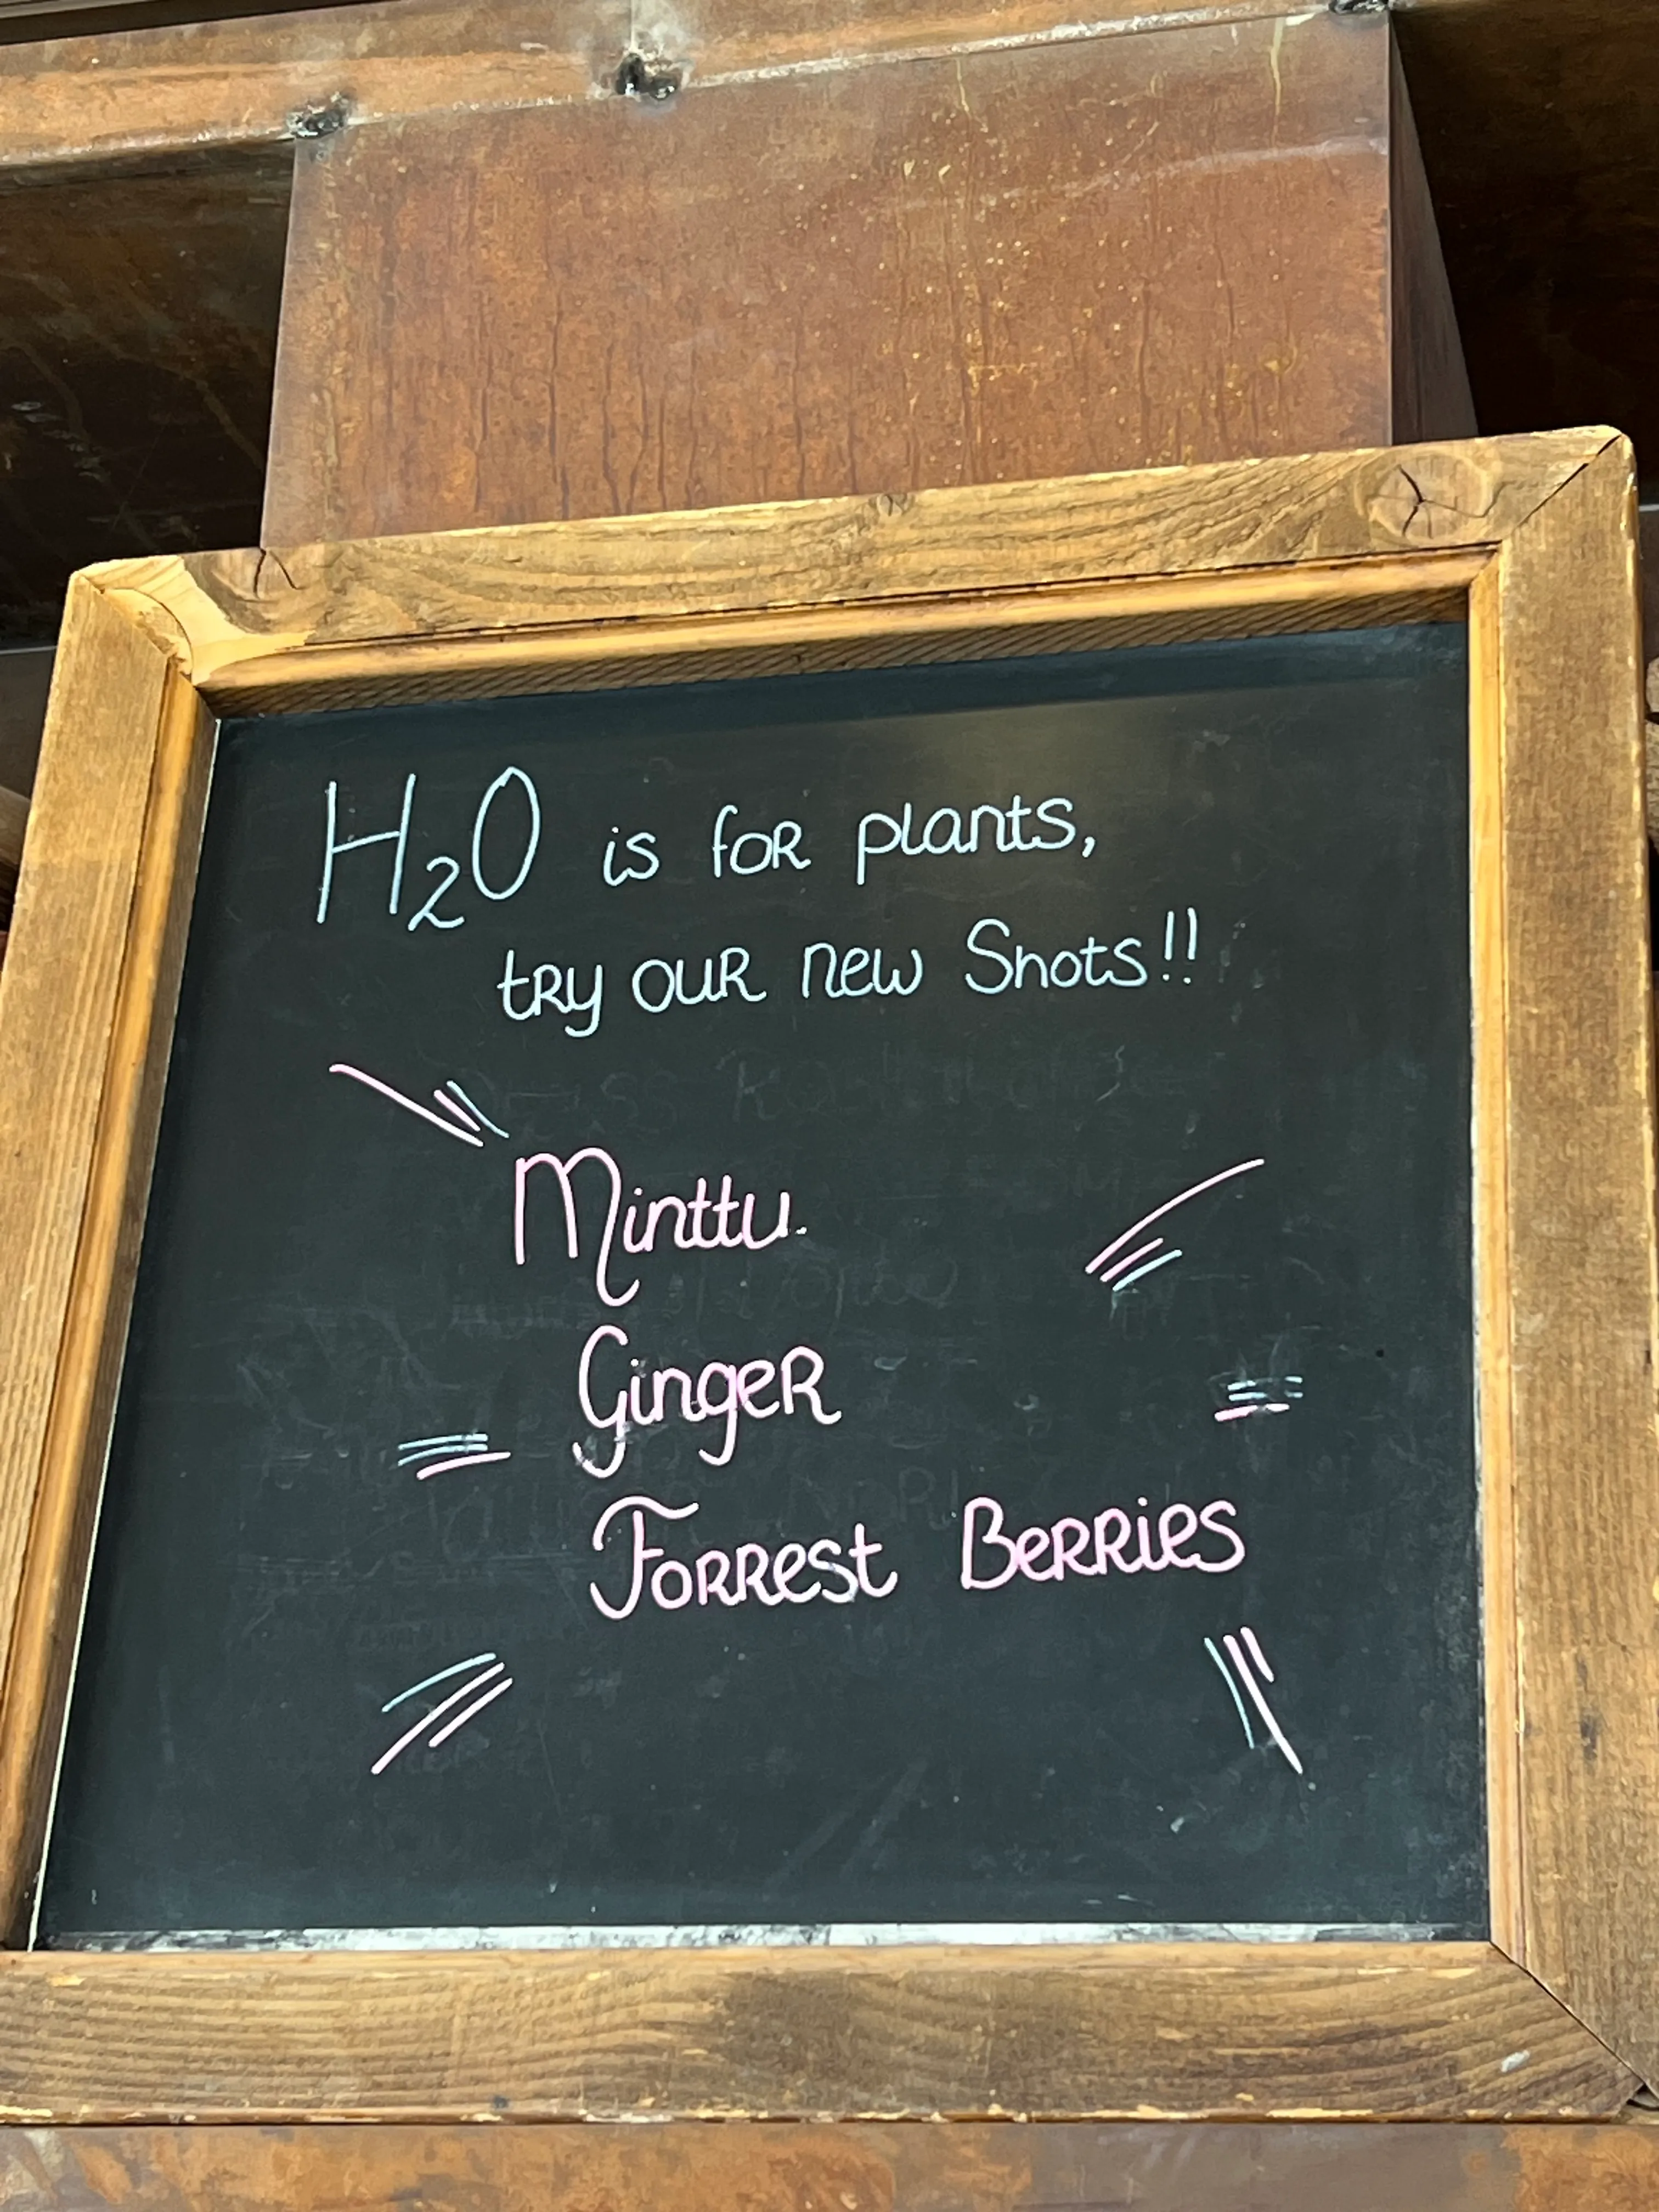 H₂O is for plants,
try our new Shots!!
Minttu
Ginger
Forrest Berries